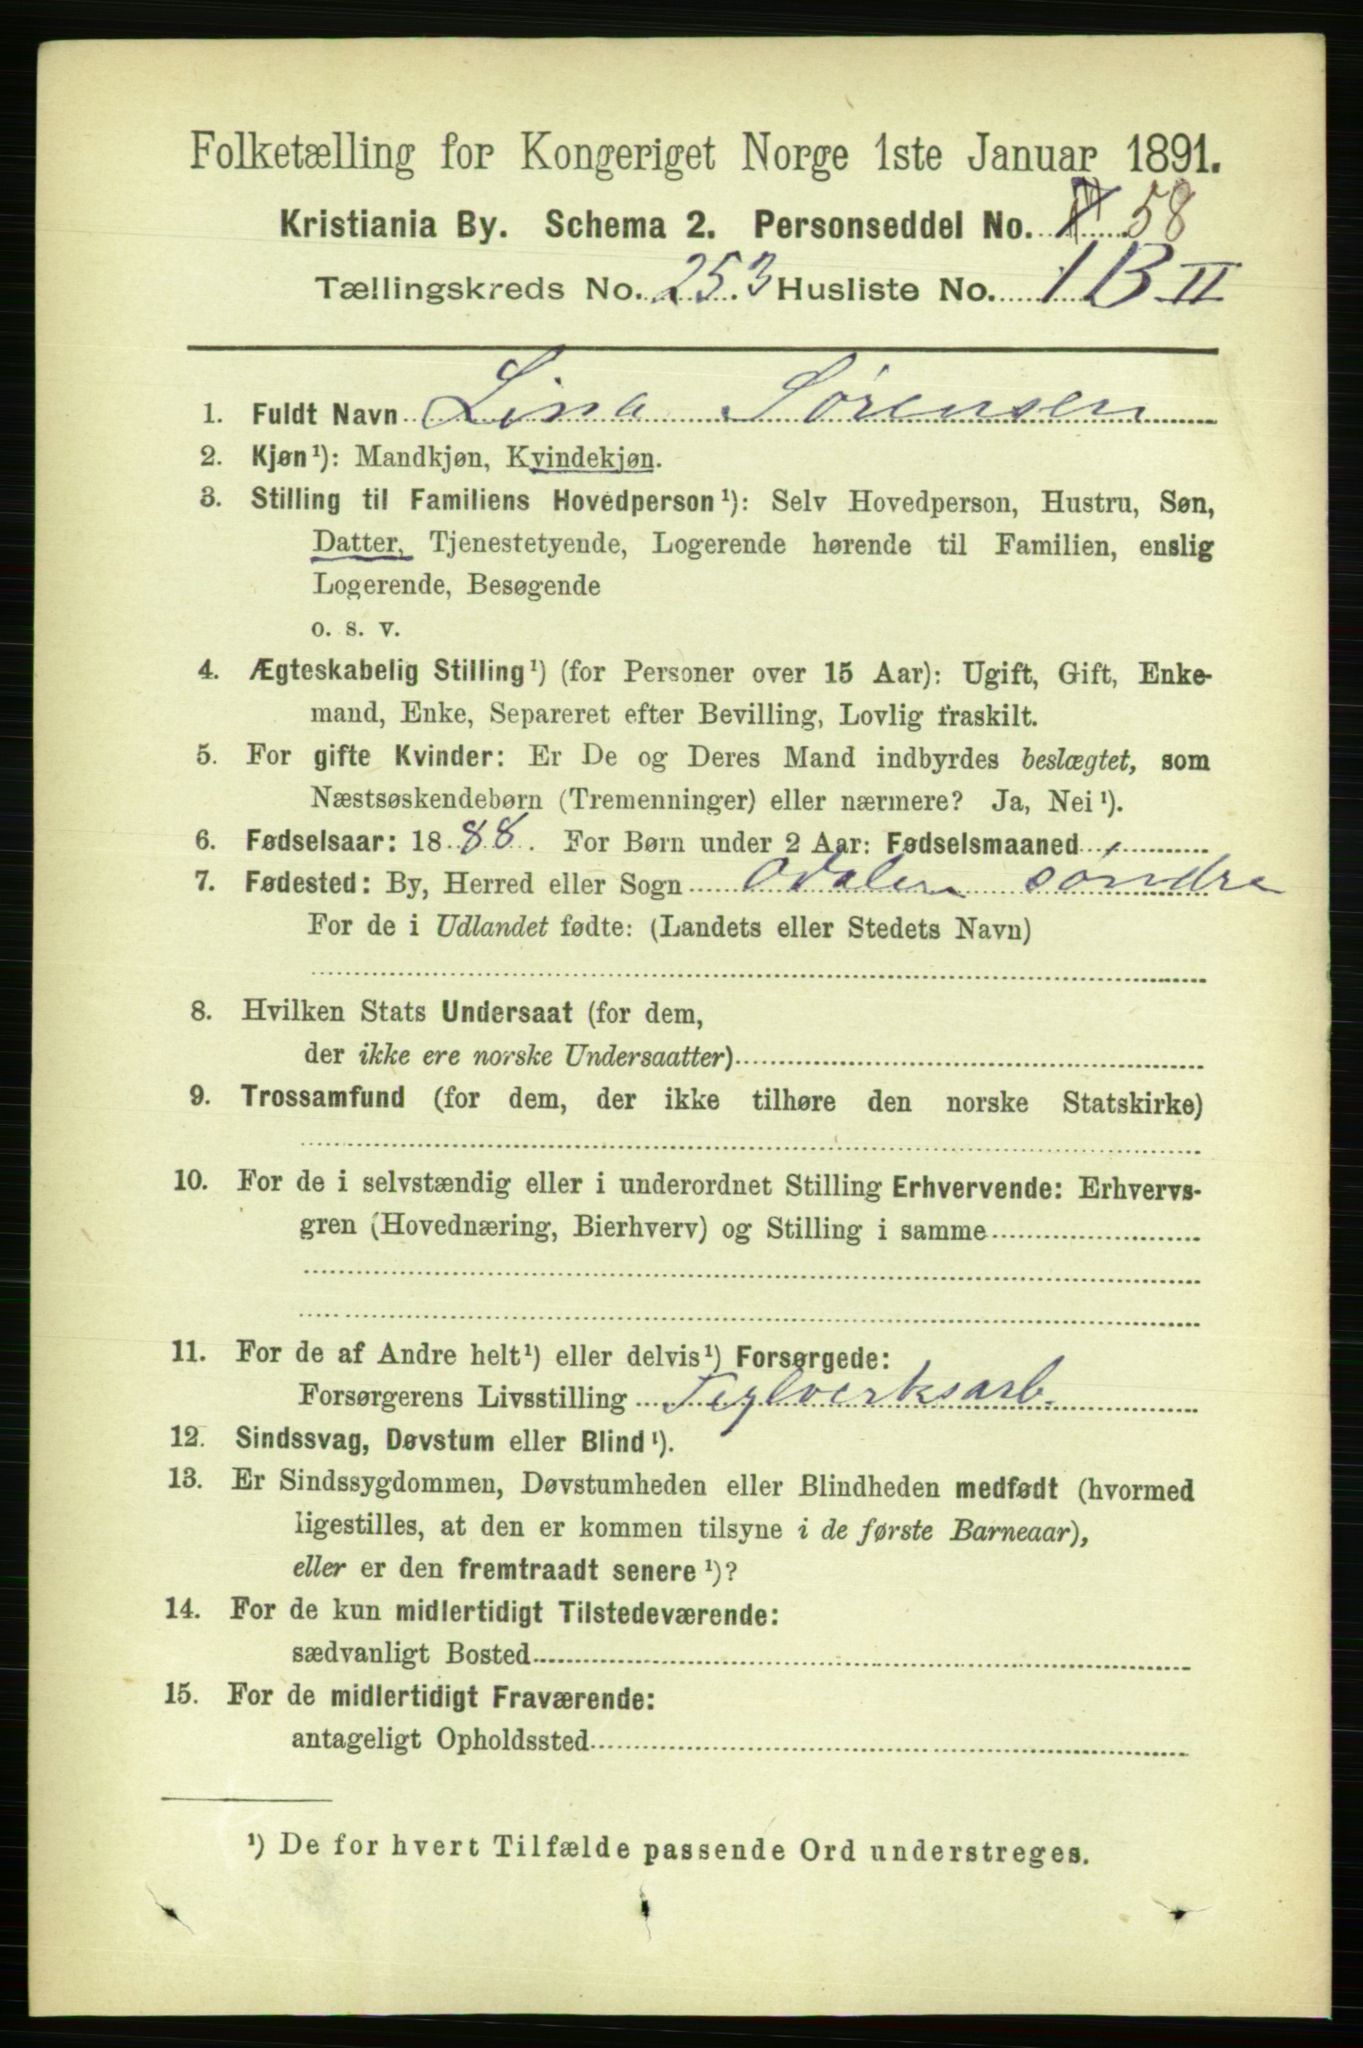 Folketælling for Kongeriget Norge 1ste Januar 1891.
Kristiania By. Schema 2. Personseddel No. 58
Tællingskreds No. 253 Husliste No. 1 B II
1. Fuldt Navn Lina Sørensen
2. Kjøn¹): Mandkjøn, Kvindekjøn.
3. Stilling til Familiens Hovedperson¹): Selv Hovedperson, Hustru, Søn,
Datter, Tjenestetyende, Logerende hørende til Familien, enslig
Logerende, Besøgende
o. s. v.
4. Ægteskabelig Stilling¹) (for Personer over 15 Aar): Ugift, Gift, Enke-
mand, Enke, Separeret efter Bevilling, Lovlig fraskilt.
5. For gifte Kvinder: Er De og Deres Mand indbyrdes beslægtet, som
Næstsøskendebørn (Tremenninger) eller nærmere? Ja, Nei¹).
6. Fødselsaar: 1888. For Børn under 2 Aar: Fødselsmaaned
7. Fødested: By, Herred eller Sogn Odalen söndre
For de i Udlandet fødte: (Landets eller Stedets Navn)
8. Hvilken Stats Undersaat (for dem,
der ikke ere norske Undersaatter)
9. Trossamfund (for dem, der ikke tilhøre den norske Statskirke)
10. For de i selvstændig eller i underordnet Stilling Erhvervende: Erhvervs-
gren (Hovednæring, Bierhverv) og Stilling i samme
11. For de af Andre helt¹) eller delvis¹) Forsørgede:
Forsørgerens Livsstilling Teglverksarb.
12. Sindssvag, Døvstum eller Blind¹).
13. Er Sindssygdommen, Døvstumheden eller Blindheden medfødt (hvormed
ligestilles, at den er kommen tilsyne i de første Barneaar),
eller er den fremtraadt senere¹)?
14. For de kun midlertidigt Tilstedeværende:
sædvanligt Bosted
15. For de midlertidigt Fraværende:
antageligt Opholdssted
¹) De for hvert Tilfælde passende Ord understreges.